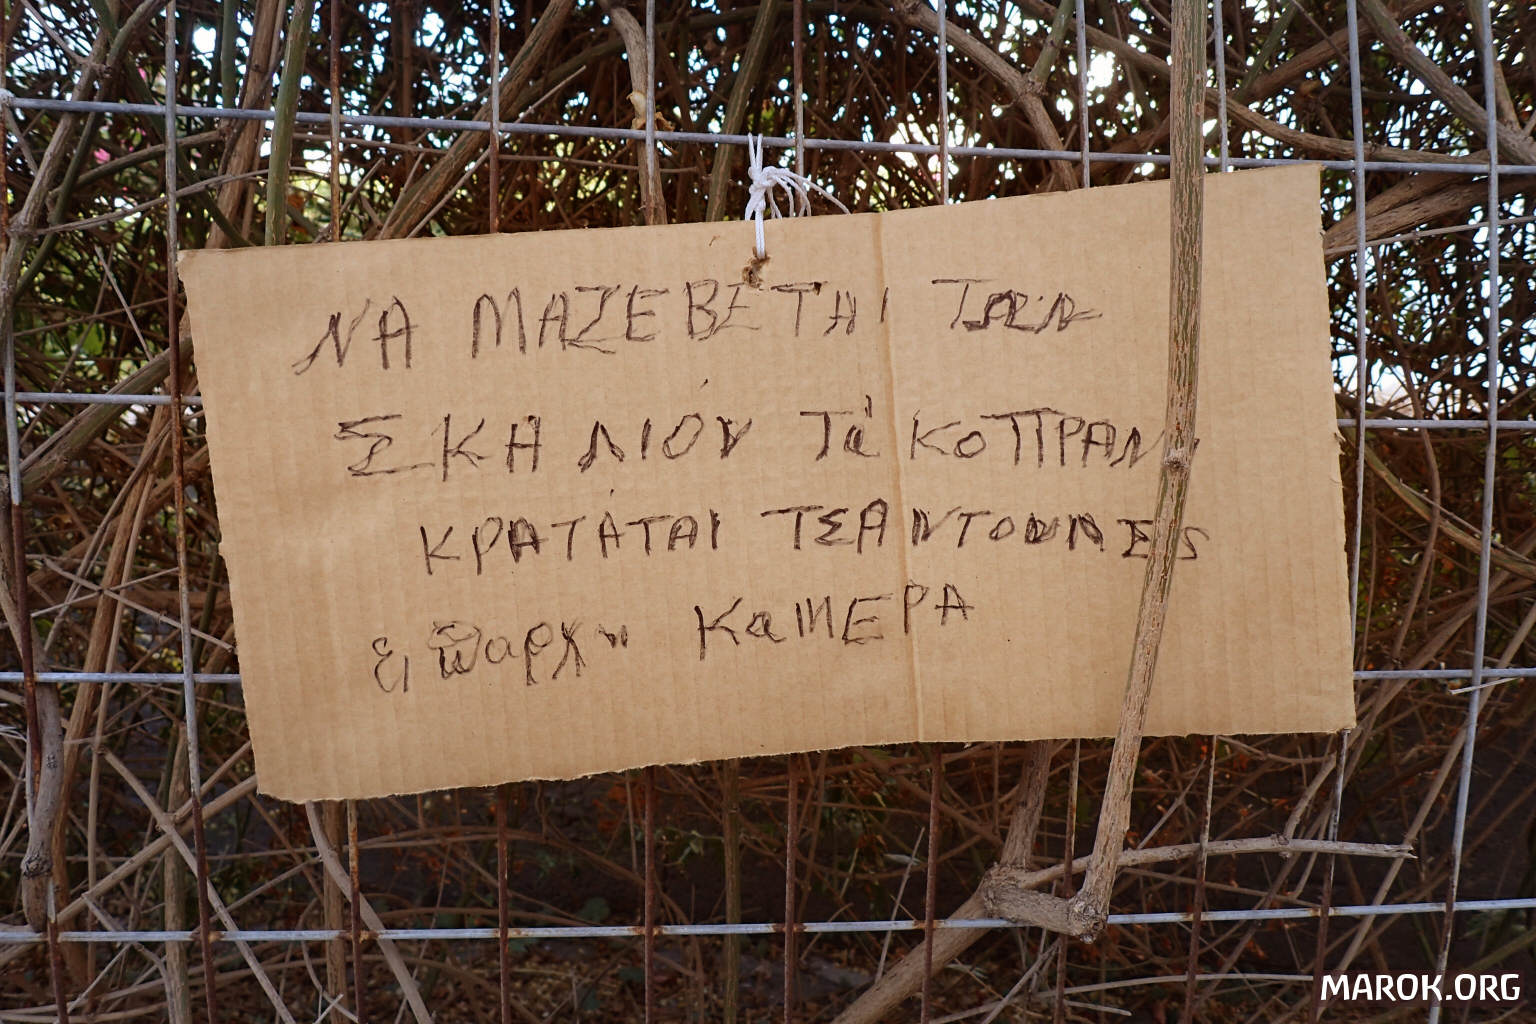 ΝΑ ΜΑΖΕΒΕΤΑΙ ΤΩΝ
ΣΚΗΛΙΟΝ Τά ΚΟΠΡΑΝ
ΚΡΑΤΆΤΑΙ ΤΣΑΝΤΟΥΛΕΣ
ει παρχη ΚαΜΕΡΑ
MAROK.ORG